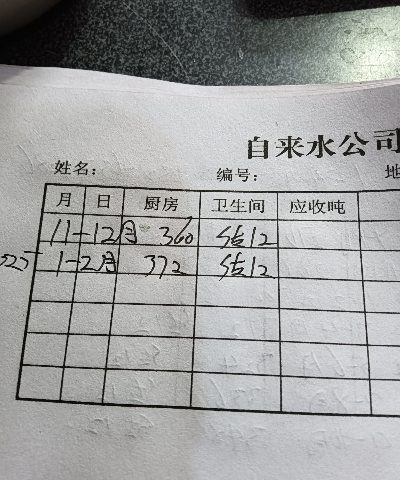 自来水公司
姓名： 编号： 地
月 日 厨房 卫生间 应收吨
11-12月 360 估12
1-2月 372 估12